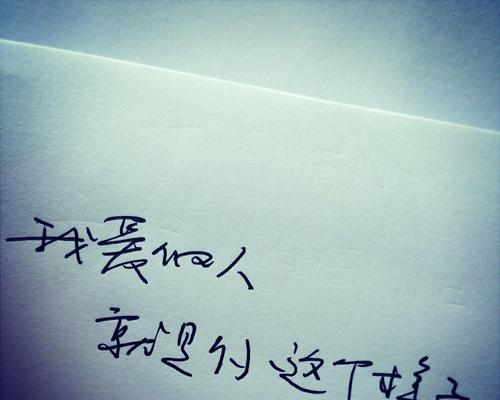 我爱的人
就是你这个样子